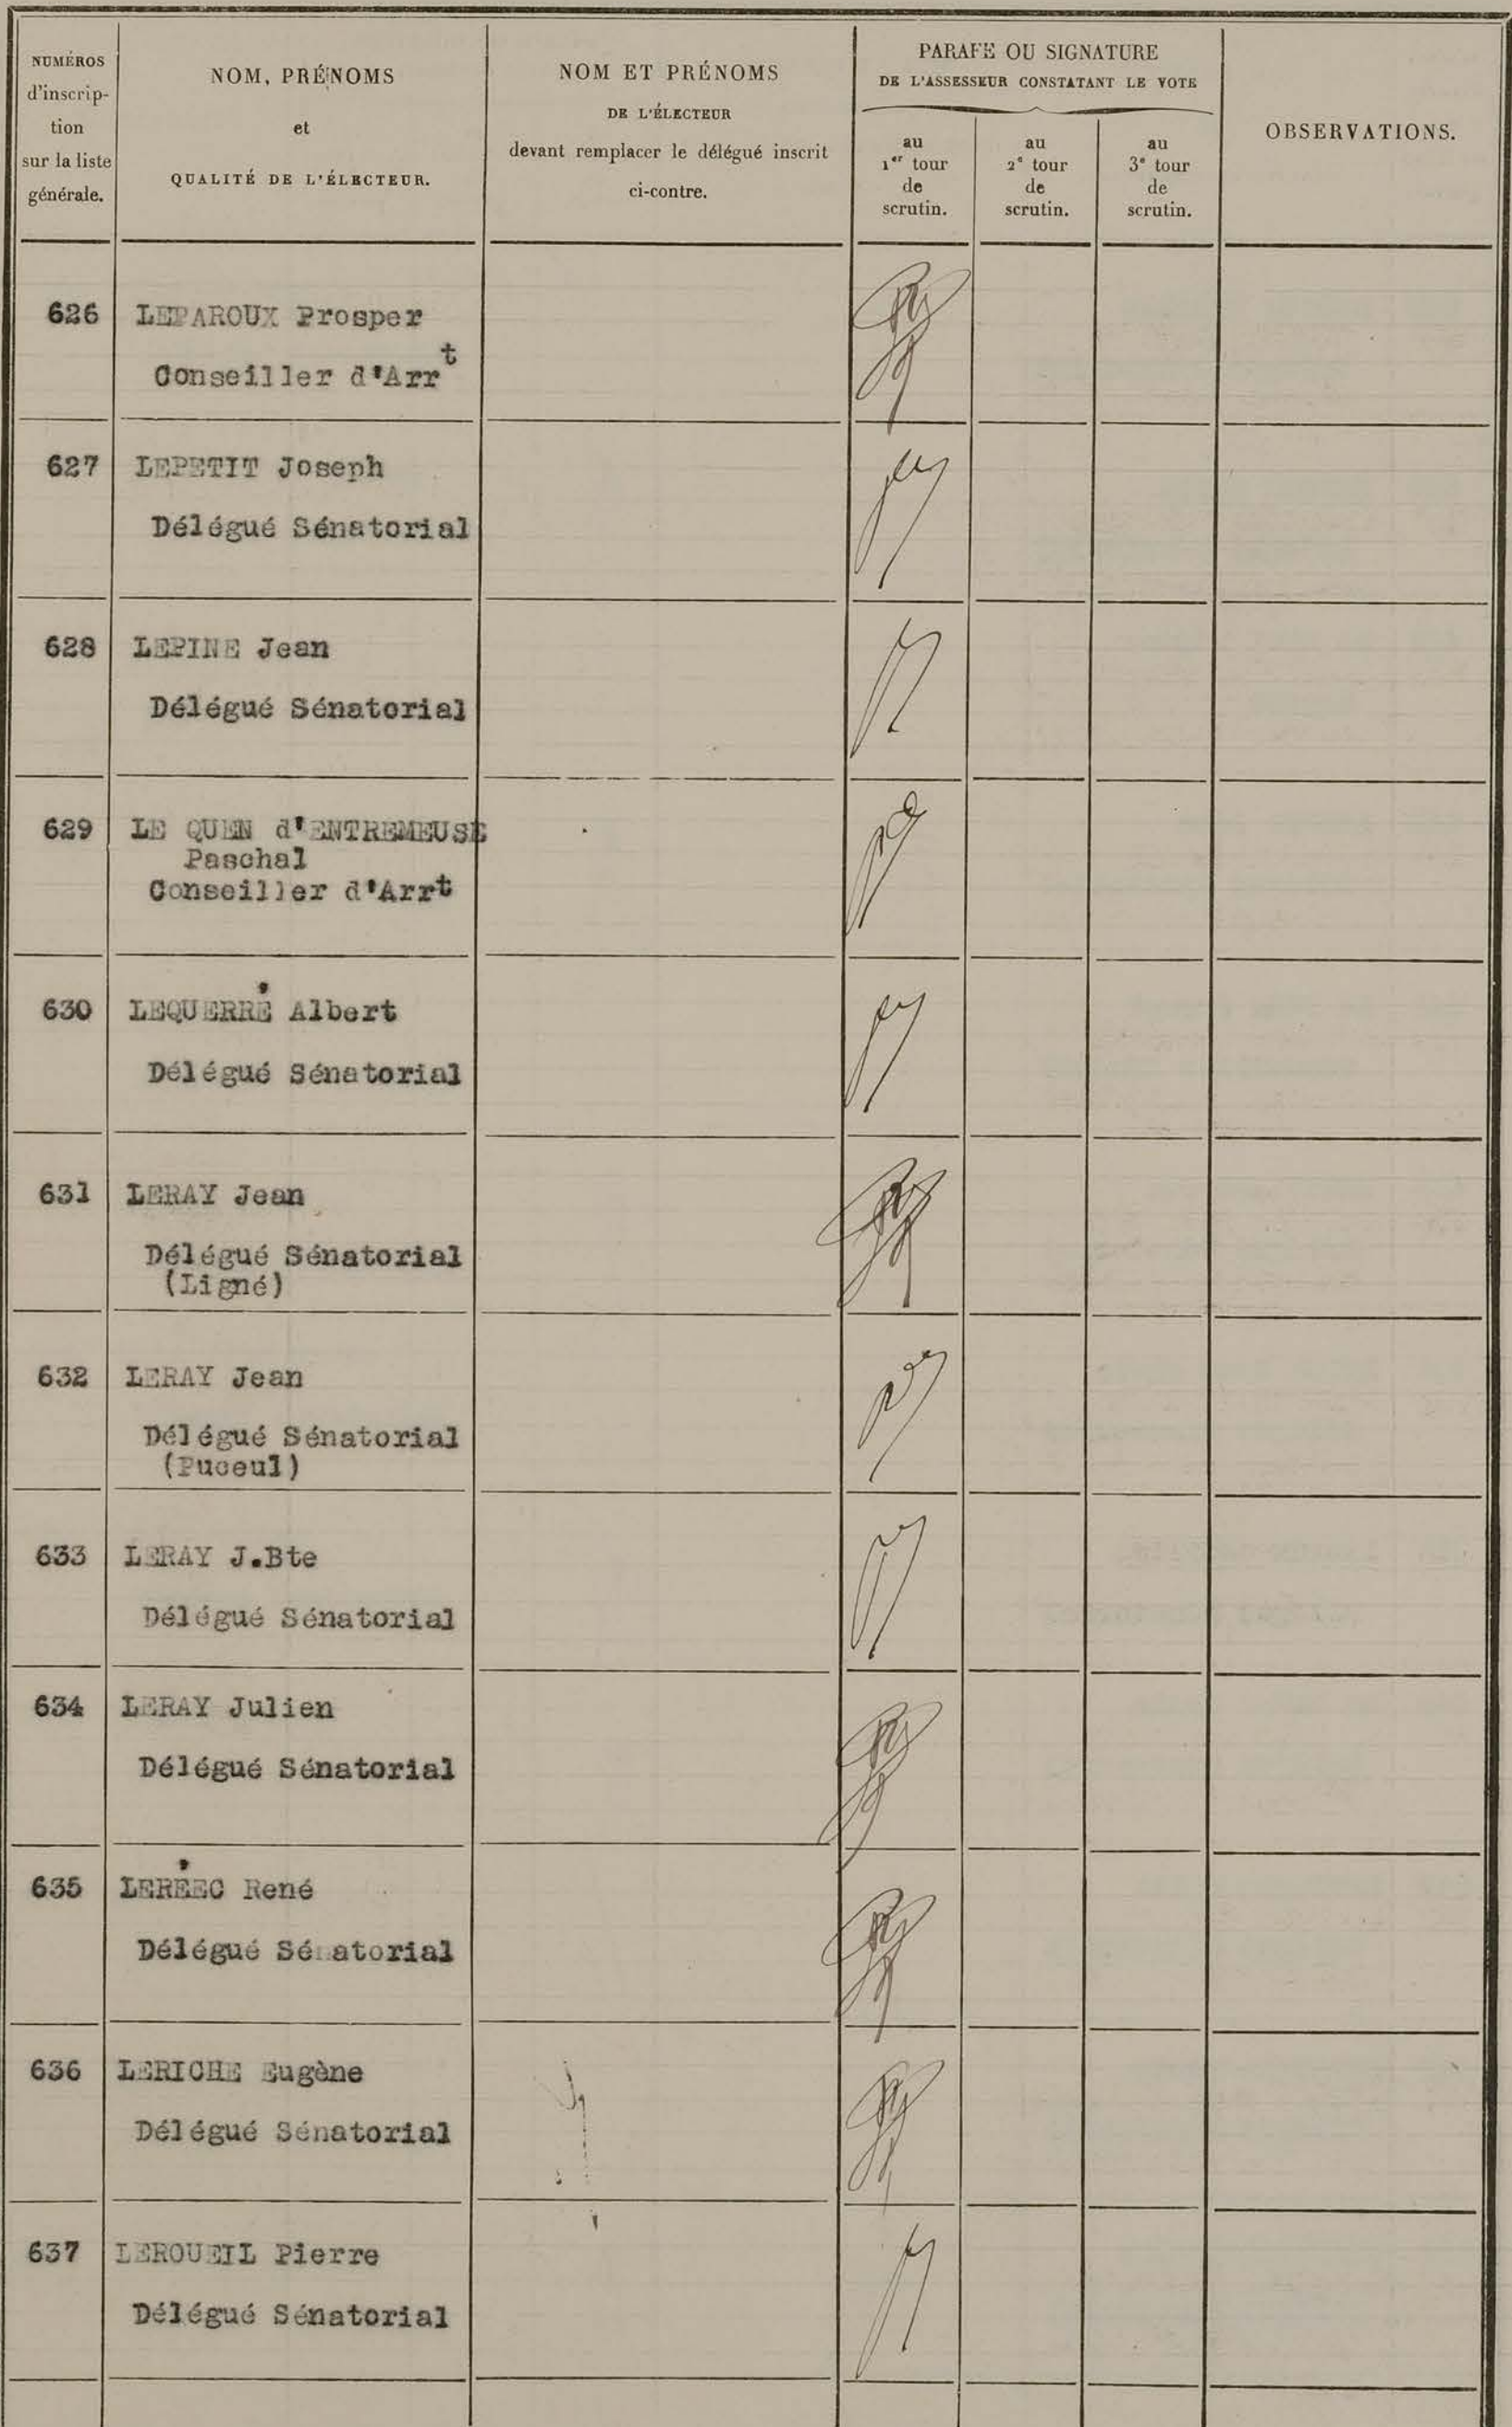 NUMÉROS
d'inscrip-
tion
sur la liste
générale.
NOM, PRÉNOMS
et
QUALITÉ DE L'ÉLECTEUR.
NOM ET PRÉNOMS
DE L'ÉLECTEUR
devant remplacer le délégué inscrit
ci-contre.
PARAFE OU SIGNATURE
DE L'ASSESSEUR CONSTATANT LE VOTE
au
1er tour
de
scrutin.
au
2e tour
de
scrutin.
au
3e tour
de
scrutin.
OBSERVATIONS.
626 LEPAROUX Prosper
Conseiller d'Arrt
627 LEPETIT Joseph
Délégué Sénatorial
628 LEPINE Jean
Délégué Sénatorial
629 LE QUEN d'ENTREMEUSE
Paschal
Conseiller d'Arrt
630 LEQUERRÉ Albert
Délégué Sénatorial
631 LERAY Jean
Délégué Sénatorial
(Ligné)
632 LERAY Jean
Délégué Sénatorial
(Puceul)
633 LERAY J.Bte
Délégué Sénatorial
634 LERAY Julien
Délégué Sénatorial
635 LERÉEC René
Délégué Sénatorial
636 LERICHE Eugène
Délégué Sénatorial
637 LEROUEIL Pierre
Délégué Sénatorial